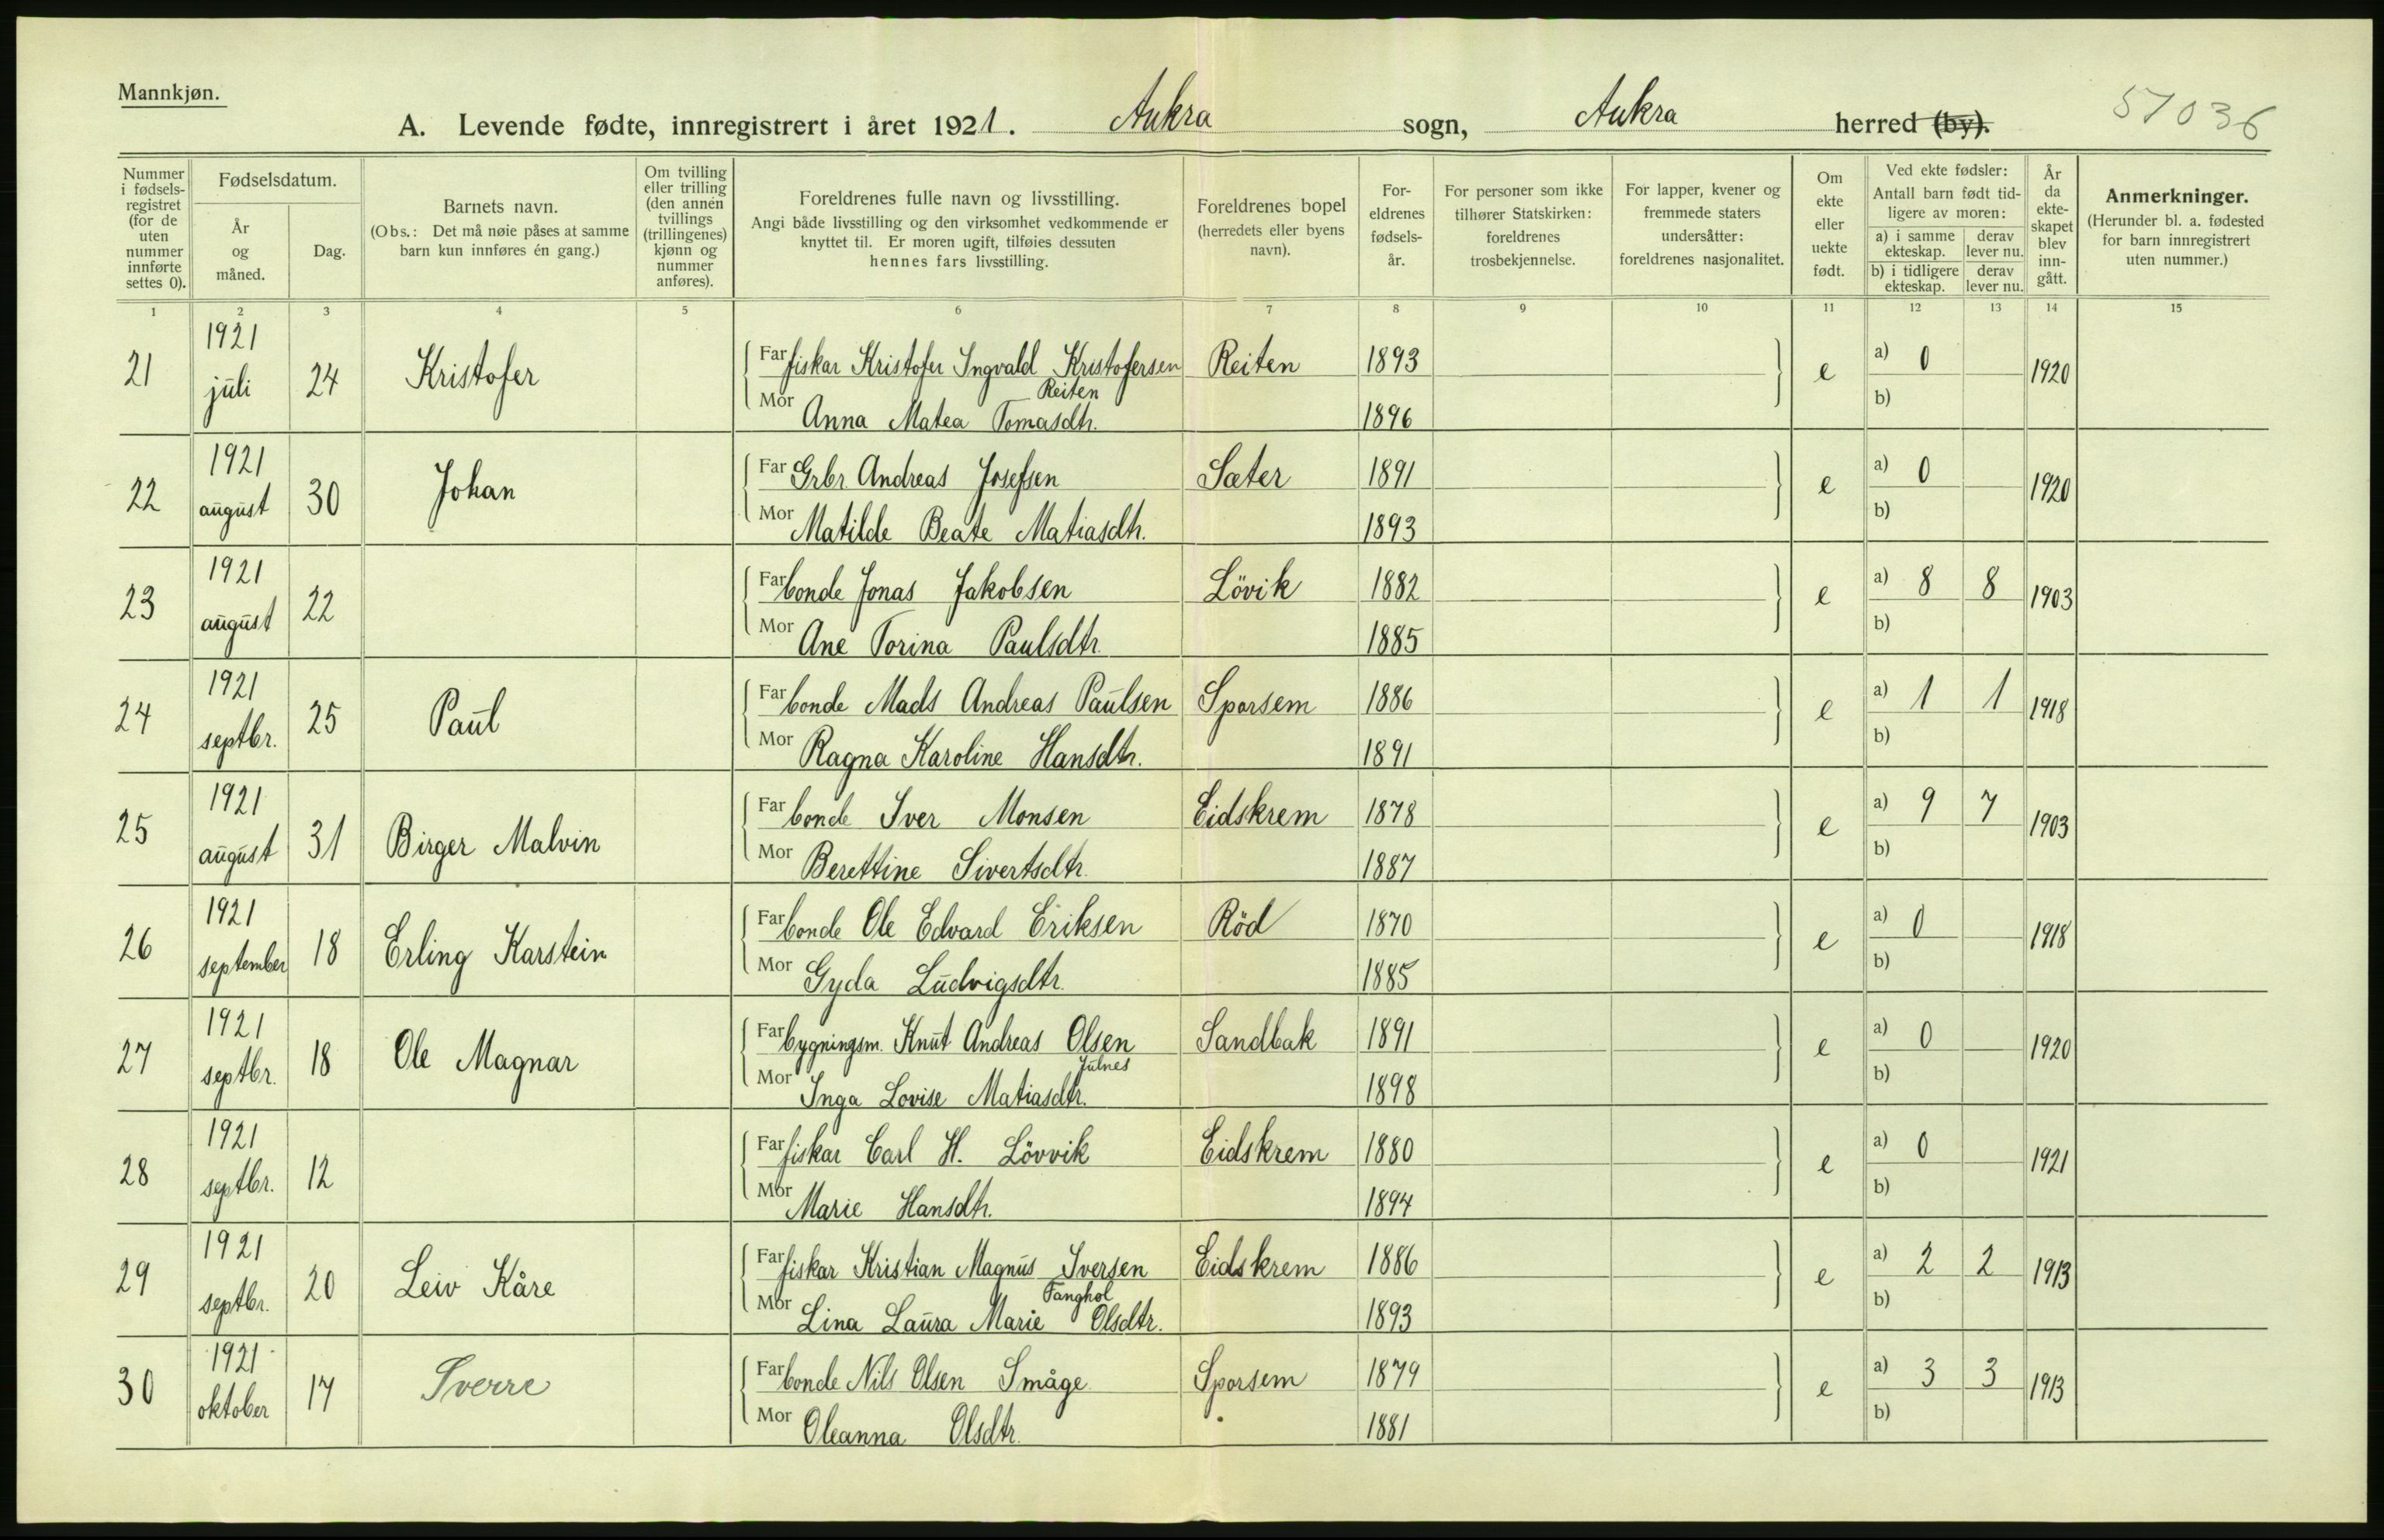 Mannkjøn.
A. Levende fødte, innregistrert i året 1921. Aukra sogn, Aukra herred (by).
51036
Nummer i fødsels-registret (for de uten nummer innførte settes 0).
Fødselsdatum.
År og måned.
Dag.
Barnets navn.
(Obs.: Det må nøie påses at samme barn kun innføres én gang.)
Om tvilling eller trilling (den annen tvillings (trillingenes) kjønn og nummer anføres).
Foreldrenes fulle navn og livsstilling.
Angi både livsstilling og den virksomhet vedkommende er knyttet til. Er moren ugift, tilføies dessuten hennes fars livsstilling.
Foreldrenes bopel (herredets eller byens navn).
For-eldrenes fødsels-år.
For personer som ikke tilhører Statskirken: foreldrenes trosbekjennelse.
For lapper, kvener og fremmede staters undersåtter: foreldrenes nasjonalitet.
Om ekte eller uekte født.
Ved ekte fødsler:
Antall barn født tid-ligere av moren:
a) i samme ekteskap. derav lever nu.
b) i tidligere ekteskap. derav lever nu.
År da ekte-skapet blev inn-gått.
Anmerkninger.
(Herunder bl. a. fødested for barn innregistrert uten nummer.)
1 2 3 4 5 6 7 8 9 10 11 12 13 14 15
21 1921 juli 24 Kristofer Far fiskar Kristofer Ingvald Kristofersen Reiten Reiten 1893 e a) 0 1920
Mor Anna Matea Tomasdtr. 1896 b)
22 1921 august 30 Johan Far Grbr. Andreas Josefsen Sæter 1891 e a) 0 1920
Mor Matilde Beate Matiasdtr. 1893 b)
23 1921 august 22 Far bonde Jonas Jakobsen Lövik 1882 e a) 8 8 1903
Mor Ane Torina Paulsdtr. 1885 b)
24 1921 septbr. 25 Paul Far bonde Mads Andreas Paulsen Sporsem 1886 e a) 1 1 1918
Mor Ragna Karoline Hansdtr. 1891 b)
25 1921 august 31 Birger Malvin Far bonde Iver Monsen Eidskrem 1878 e a) 9 7 1903
Mor Berettine Sivertsdtr. 1887 b)
26 1921 september 18 Erling Karstein Far bonde Ole Edvard Eriksen Röd 1870 e a) 0 1918
Mor Gyda Ludvigsdtr. 1885 b)
27 1921 septbr. 18 Ole Magnar Far bygningsm. Knut Andreas Olsen Julnes Sandbak 1891 e a) 0 1920
Mor Inga Lovise Matiasdtr. 1898 b)
28 1921 septbr. 12 Far fiskar Carl H. Lövvik Eidskrem 1880 e a) 0 1921
Mor Marie Hansdtr. 1894 b)
29 1921 septbr. 20 Leiv Kåre Far fiskar Kristian Magnus Iversen Tanghol Eidskrem 1886 e a) 2 2 1913
Mor Lina Laura Marie Olsdtr. 1893 b)
30 1921 oktober 17 Sverre Far bonde Nils Olsen Småge Sporsem 1879 e a) 3 3 1913
Mor Oleanna Olsdtr. 1881 b)